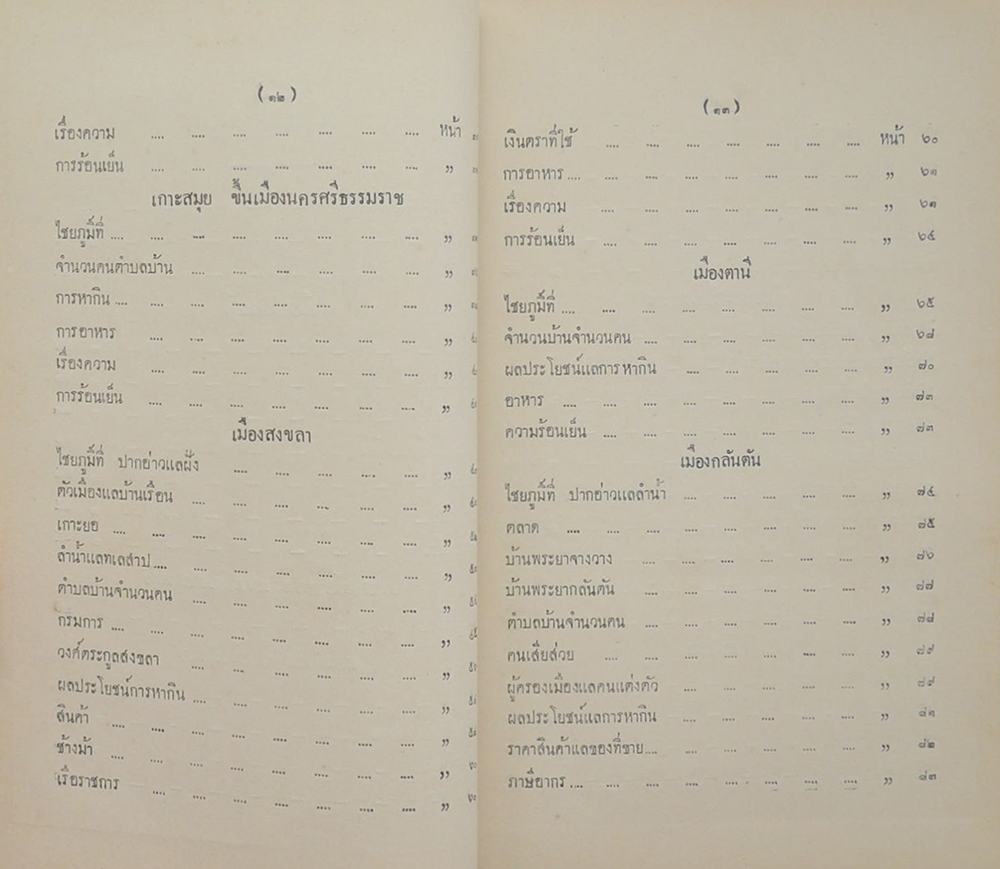 (๑๒)
เรื่องความ .... .... .... .... .... .... .... หน้า
การร้อนเย็น .... .... .... .... .... .... .... ”
เกาะสมุย ขึ้นเมืองนครศรีธรรมราช
ไชยภูมิ์ที่ .... .... .... .... .... .... .... .... ”
จำนวนคนตำบลบ้าน .... .... .... .... .... .... ”
การหากิน .... .... .... .... .... .... .... .... ”
การอาหาร .... .... .... .... .... .... .... ”
เรื่องความ .... .... .... .... .... .... .... ”
การร้อนเย็น .... .... .... .... .... .... .... ”
เมืองสงขลา
ไชยภูมิ์ที่ ปากอ่าวแลฝั่ง .... .... .... .... .... ”
ตัวเมืองแลบ้านเรือน .... .... .... .... .... .... ”
เกาะยอ .... .... .... .... .... .... .... .... ”
ลำน้ำแลทเลสาป .... .... .... .... .... .... .... ”
ตำบลบ้านจำนวนคน .... .... .... .... .... .... ”
กรมการ .... .... .... .... .... .... .... .... ”
วงศ์ตระกูลสงขลา .... .... .... .... .... .... ”
ผลประโยชน์การหากิน .... .... .... .... .... .... ”
สินค้า .... .... .... .... .... .... .... .... ”
ช้างม้า .... .... .... .... .... .... .... .... ”
เรือราชการ .... .... .... .... .... .... .... ”
(๑๓)
เงินตราที่ใช้ .... .... .... .... .... .... .... หน้า ๖๐
การอาหาร .... .... .... .... .... .... .... .... ” ๖๑
เรื่องความ .... .... .... .... .... .... .... ” ๖๑
การร้อนเย็น .... .... .... .... .... .... .... ” ๖๔
เมืองตานี
ไชยภูมิ์ที่ .... .... .... .... .... .... .... .... ” ๖๕
จำนวนบ้านจำนวนคน .... .... .... .... .... .... ” ๖๘
ผลประโยชน์แลการหากิน .... .... .... .... .... ” ๗๐
อาหาร .... .... .... .... .... .... .... .... ” ๗๓
ความร้อนเย็น .... .... .... .... .... .... .... ” ๗๓
เมืองกลันตัน
ไชยภูมิ์ที่ ปากอ่าวแลลำน้ำ .... .... .... .... .... ” ๗๔
ตลาด .... .... .... .... .... .... .... .... ” ๗๕
บ้านพระยาจางวาง .... .... .... .... .... .... ” ๗๖
บ้านพระยากลันตัน .... .... .... .... .... .... ” ๗๗
ตำบลบ้านจำนวนคน .... .... .... .... .... .... ” ๗๘
คนเสียส่วย .... .... .... .... .... .... .... ” ๗๙
ผู้ครองเมืองแลคนแต่งตัว .... .... .... .... .... ” ๗๙
ผลประโยชน์แลการหากิน .... .... .... .... .... ” ๘๑
ราคาสินค้าแลของที่ขาย .... .... .... .... .... .... ” ๘๒
ภาษีอากร .... .... .... .... .... .... .... .... ” ๘๓